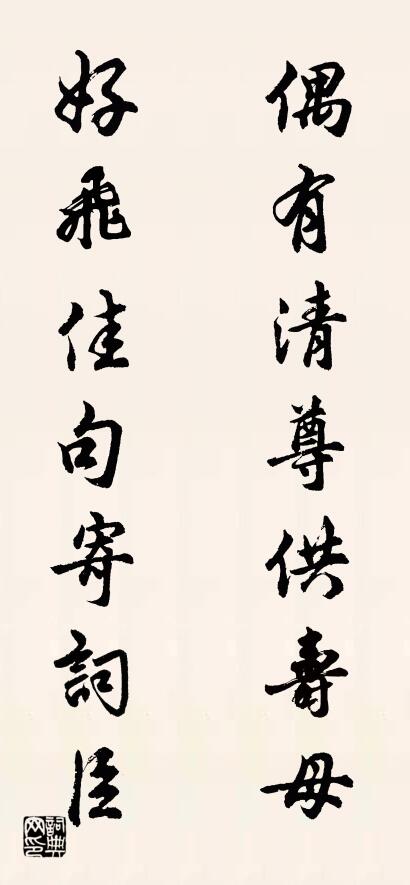 偶有清尊供壽母
好飛佳句寄詞臣
詞典網印